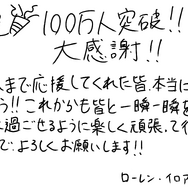 100万人突破!!
大感謝!!
まで応援してくれた皆、本当に
う!!これからも皆と一瞬一瞬を
に過ごせるように楽しく頑張って
で よろしくお願いします!!
ローレン・イロア